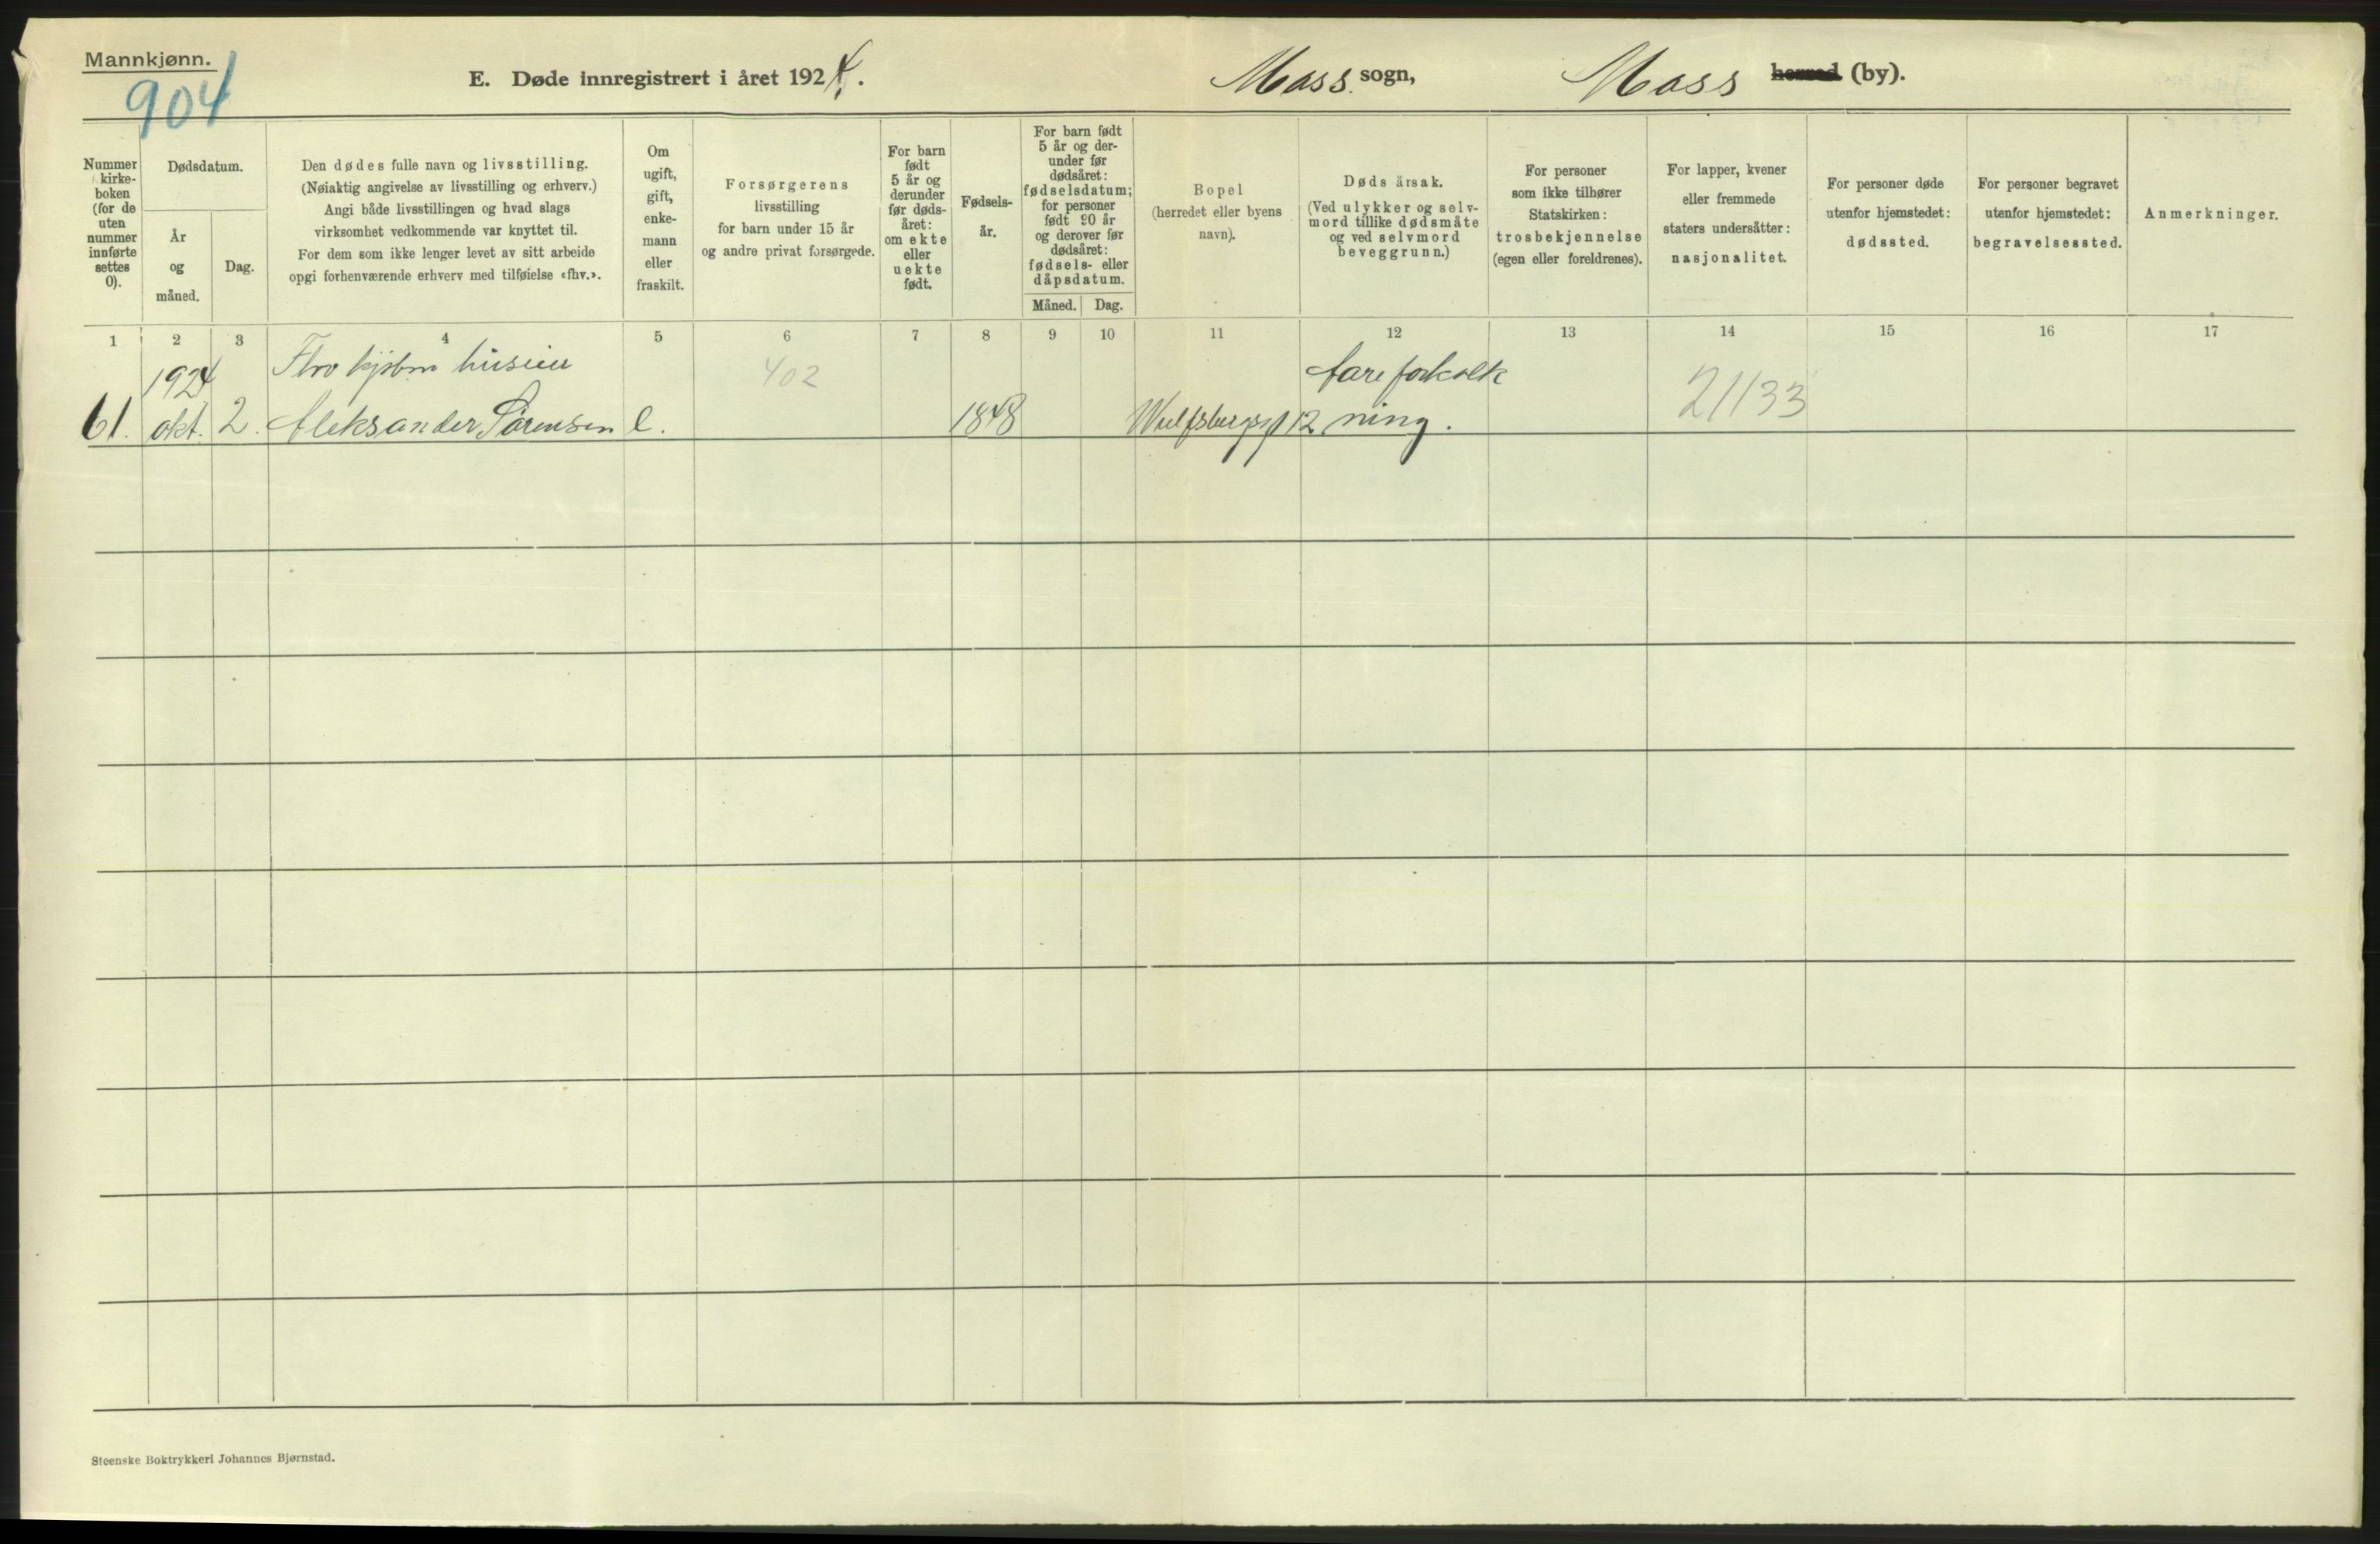 Mannkjønn.
904
E. Døde innregistrert i året 1924.
Moss sogn,
Moss herred (by).
Nummer
kirke-
boken
(for de
uten
nummer
innførte
settes
0).
Dødsdatum.
År
og
måned.
Dag.
Den dødes fulle navn og livsstilling.
(Nøiaktig angivelse av livsstilling og erhverv.)
Angi både livsstillingen og hvad slags
virksomhet vedkommende var knyttet til.
For dem som ikke lenger levet av sitt arbeide
opgi forhenværende erhverv med tilføielse «fhv.».
Om
ugift,
gift,
enke-
mann
eller
fraskilt.
Forsørgerens
livsstilling
for barn under 15 år
og andre privat forsørgede.
For barn
født
5 år og
derunder
før døds-
året:
om ekte
eller
uekte
født.
Fødsels-
år.
For barn født
5 år og der-
under før
dødsåret:
fødselsdatum;
for personer
født 90 år
og derover før
dødsåret:
fødsels- eller
dåpsdatum.
Måned.
Dag.
Bopel
(herredet eller byens
navn).
Døds årsak.
(Ved ulykker og selv-
mord tillike dødsmåte
og ved selvmord
beveggrunn.)
For personer
som ikke tilhører
Statskirken:
trosbekjennelse
(egen eller foreldrenes).
For lapper, kvener
eller fremmede
staters undersåtter:
nasjonalitet.
For personer døde
utenfor hjemstedet:
dødssted.
For personer begravet
utenfor hjemstedet:
begravelsessted.
Anmerkninger.
1 2 3 4 5 6 7 8 9 10 11 12 13 14 15 16 17
1924 huseier 402 Åreforkalk 21133
61. okt. 2. Aleksander Sørensen e. 1848 Wulfsbergsgt 12 ning.
Steenske Boktrykkeri Johannes Bjørnstad.